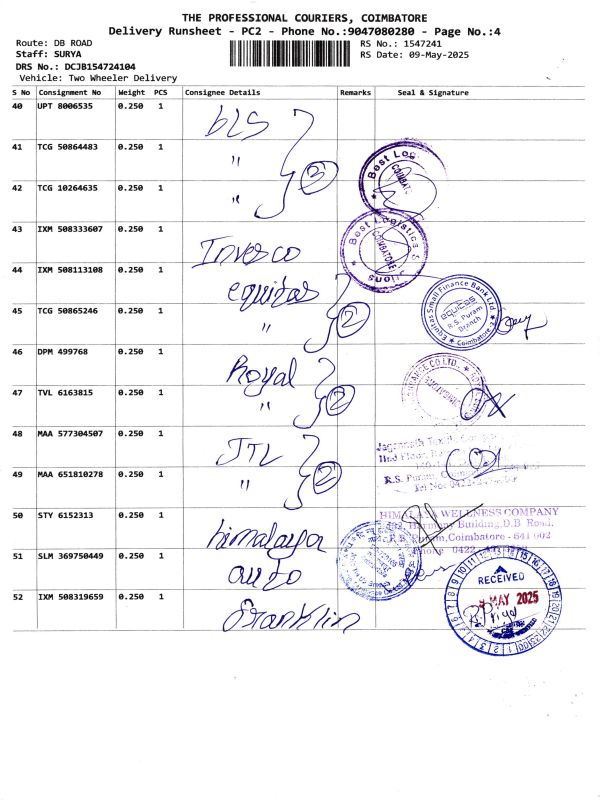 THE PROFESSIONAL COURIERS, COIMBATORE
Delivery Runsheet - PC2 - Phone No.:9047080280 - Page No.:4
Route: DB ROAD
Staff: SURYA
DRS No.: DCJB154724104
Vehicle: Two Wheeler Delivery
RS No.: 1547241
RS Date: 09-May-2025
S No Consignment No Weight PCS Consignee Details Remarks Seal & Signature
40 UPT 8006535 0.250 1 bLS
41 TCG 50864483 0.250 1 " 3
42 TCG 10264635 0.250 1 "
Best Log
COIMBATO
43 IXM 508333607 0.250 1 Invesco
Best Logistics
COIMBATORE
44 IXM 508113108 0.250 1 equitas
45 TCG 50865246 0.250 1 " 2
Equitas Small Finance Bank Ltd.
equitas
R.S. Puram
Branch
Coimbatore
46 DPM 499768 0.250 1 Royal
47 TVL 6163815 0.250 1 " 2
CO.LTD.
48 MAA 577304507 0.250 1 JTL
49 MAA 651810278 0.250 1 " 2
Jagannath
IInd Floor,
R.S. Puram,
Tel No: 0422
50 STY 6152313 0.250 1 himalaya
HIMALAYA WELLNESS COMPANY
Harmony Building, D.B Road,
R.S Puram, Coimbatore - 641 002
Phone 0422
51 SLM 369750449 0.250 1 auto
52 IXM 508319659 0.250 1 Franklin
RECEIVED
9 MAY 2025
R. Priya